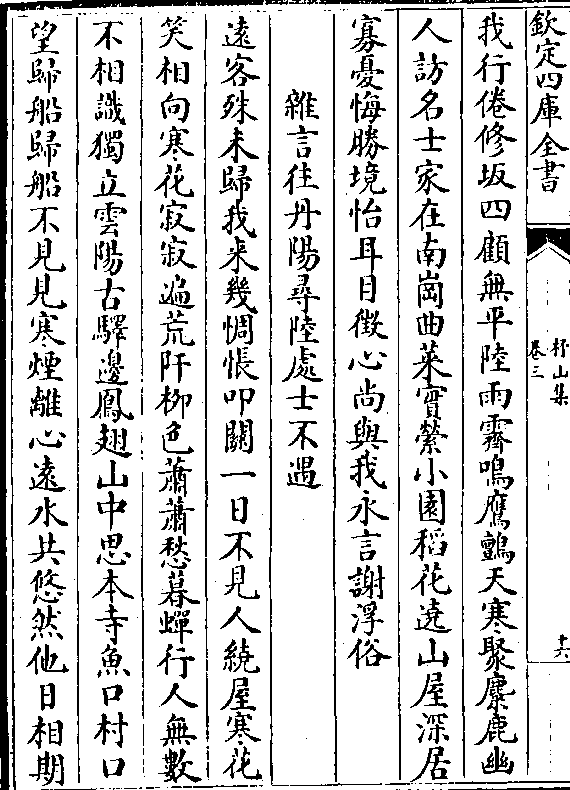 欽定四庫全書
杼山集
卷三
十六
我行倦修坂四顧無平陸雨霽鳴鷹鸇天寒聚麋鹿幽
人訪名士家在南岡曲菜實縈小園稻花遶山屋深居
寡憂悔勝境怡耳目徵心尚與我永言謝浮俗
雜言往丹陽尋陸處士不遇
遠客殊未歸我来幾惆悵叩關一日不見人繞屋寒花
笑相向寒花寂寂遍荒阡柳色蕭蕭愁暮蟬行人無數
不相識獨立雲陽古驛邊鳳翅山中思本寺魚口村口
望歸船歸船不見見寒煙離心遠水共悠然他日相期